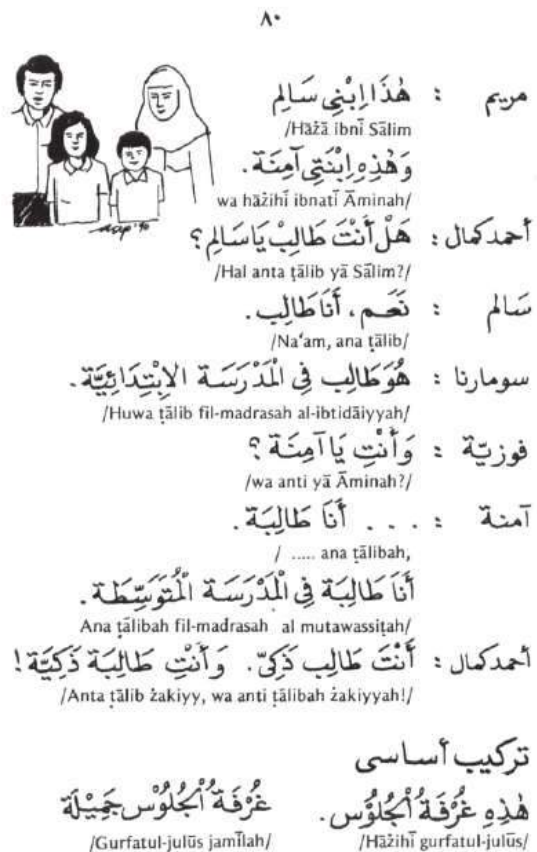 ٨٠
مريم : هٰذَا اِبْنِي سَالِم
/Hāżā ibnī Sālim
وَهٰذِهِ اِبْنَتِي آمِنَة.
wa hāżihī ibnatī Āminah/
أحمدكمال : هَلْ أَنْتَ طَالِبْ يَا سَالِم؟
/Hal anta ṭālib yā Sālim?/
سَالم : نَعَم، أَنَا طَالِب.
/Na'am, ana ṭālib/
سومارنا : هُوَ طَالِب فِي الْمَدْرَسَة الاِبْتِدَائِيَّة.
/Huwa ṭālib fil-madrasah al-ibtidāiyyah/
فوزيّة : وَأَنْتِ يَا آمِنَة؟
/wa anti yā Āminah?/
آمنة : . . . أَنَا طَالِبَة.
/ ..... ana ṭālibah,
أَنَا طَالِبَة فِي الْمَدْرَسَة الْمُتَوَسِّطَة.
Ana ṭālibah fil-madrasah al mutawassiṭah/
أحمدكمال : أَنْتَ طَالِب ذَكِيّ. وَأَنْتِ طَالِبَة ذَكِيَّة!
/Anta ṭālib żakiyy, wa anti ṭālibah żakiyyah!/
تركيب أساسى
هٰذِهِ غُرْفَةُ الْجُلُوْس. غُرْفَةُ الْجُلُوْس جَمِيْلَة
/Hāżihī gurfatul-julūs/ /Gurfatul-julūs jamīlah/